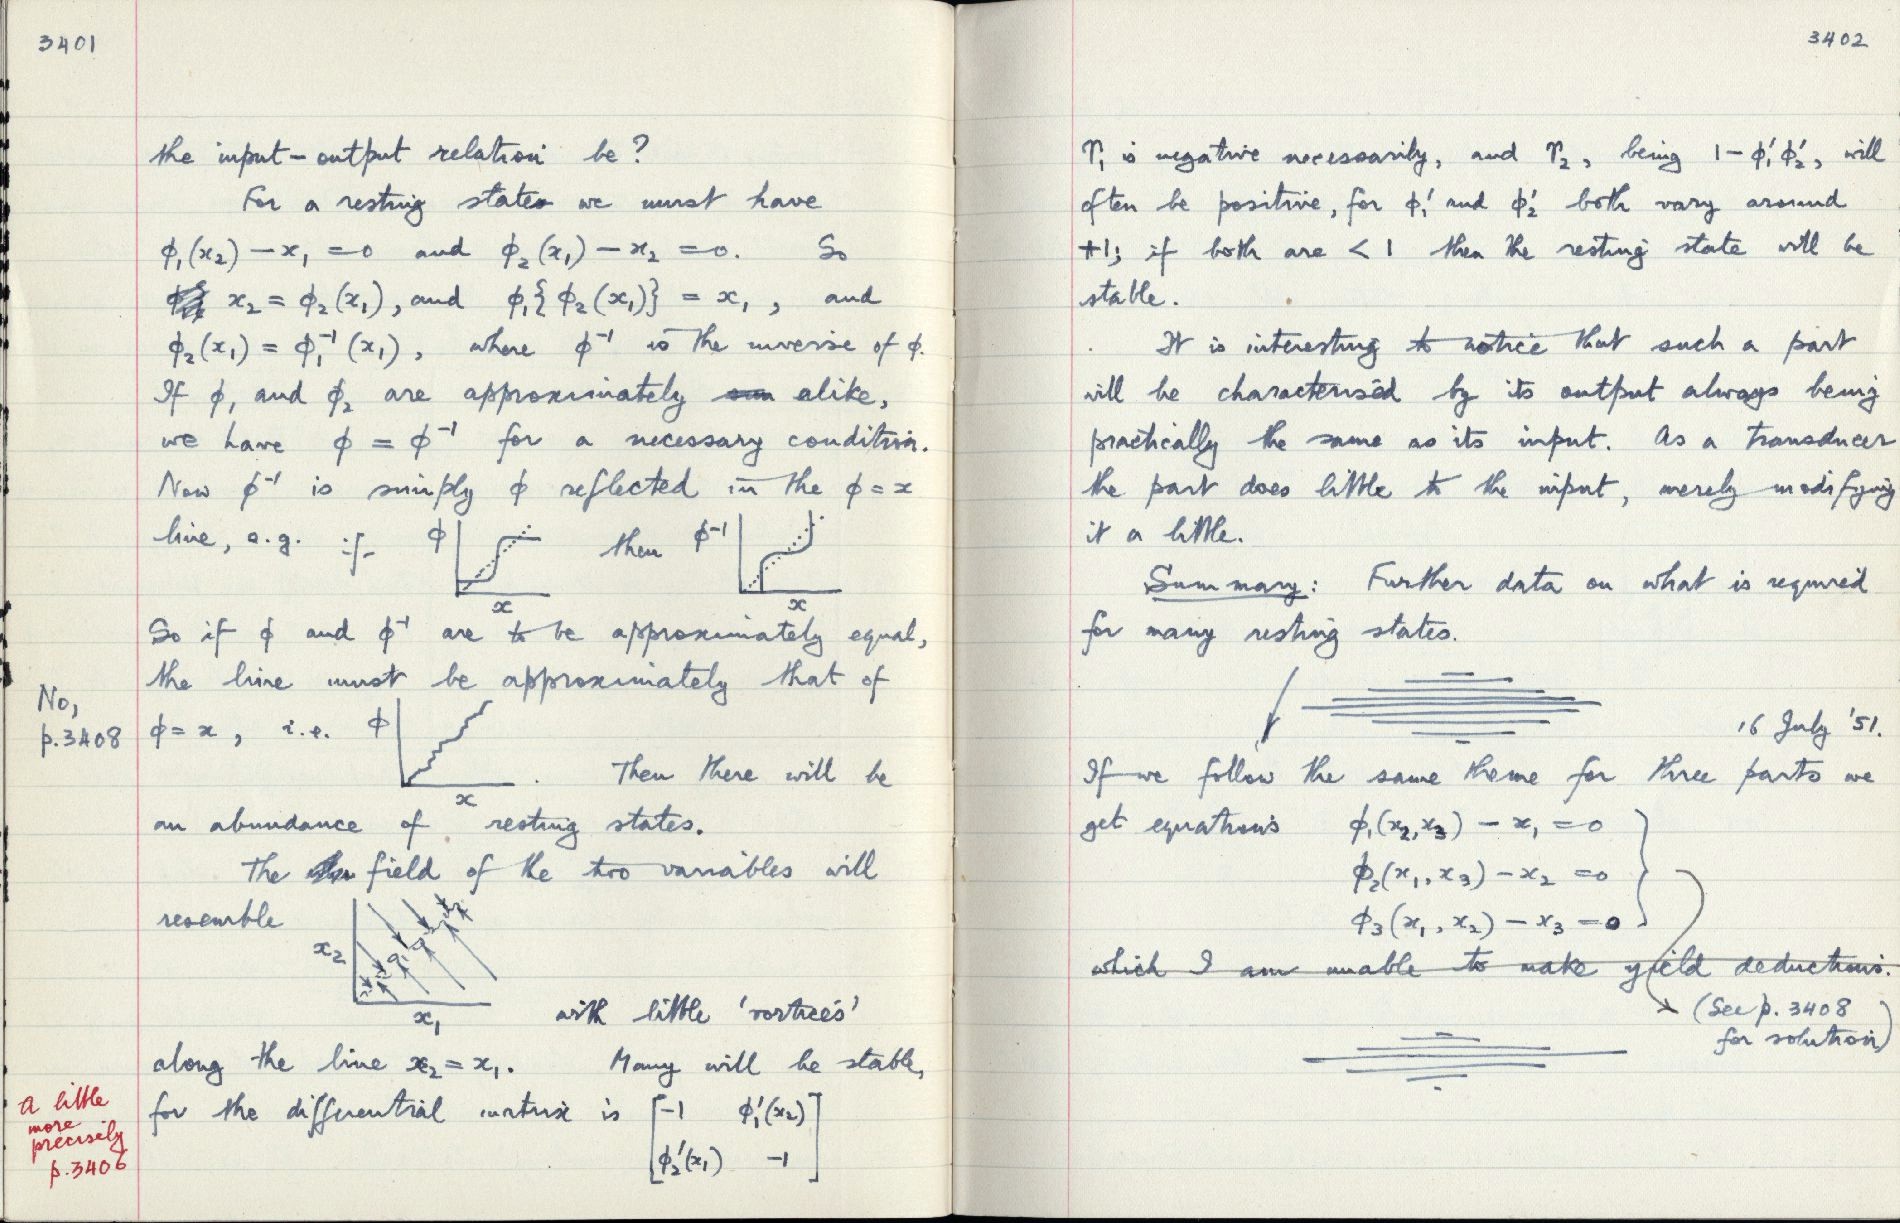 3401
the input-output relation be?
For a resting state we must have
ϕ₁(x₂) − x₁ = 0 and ϕ₂(x₁) − x₂ = 0. So
x₂ = ϕ₂(x₁), and ϕ₁{ϕ₂(x₁)} = x₁, and
ϕ₂(x₁) = ϕ₁⁻¹(x₁), where ϕ⁻¹ is the inverse of ϕ.
If ϕ₁ and ϕ₂ are approximately alike,
we have ϕ = ϕ⁻¹ for a necessary condition.
Now ϕ⁻¹ is simply ϕ reflected in the ϕ = x
line, e.g. if ϕ x then ϕ⁻¹ x
So if ϕ and ϕ⁻¹ are to be approximately equal,
the line must be approximately that of
No,
p.3408
ϕ = x, i.e. ϕ x . Then there will be
an abundance of resting states.
The field of the two variables will
resemble
x₂
x₁
with little 'vortices'
along the line x₂ = x₁. Many will be stable,
A little
more
precisely
p.3406
for the differential matrix is [−1 ϕ₁′(x₂)
ϕ₂′(x₁) −1]
3402
γ₁ is negative necessarily, and γ₂, being 1 − ϕ₁′ϕ₂′, will
often be positive, for ϕ₁′ and ϕ₂′ both vary around
+1; if both are < 1 then the resting state will be
stable.
It is interesting to notice that such a part
will be characterised by its output always being
practically the same as its input. As a transducer
the part does little to the input, merely modifying
it a little.
Summary: Further data on what is required
for many resting states.
16 July '51.
If we follow the same theme for three parts we
get equations ϕ₁(x₂, x₃) − x₁ = 0
ϕ₂(x₁, x₃) − x₂ = 0
ϕ₃(x₁, x₂) − x₃ = 0
which I am unable to make yield deductions.
(See p. 3408
for solution)